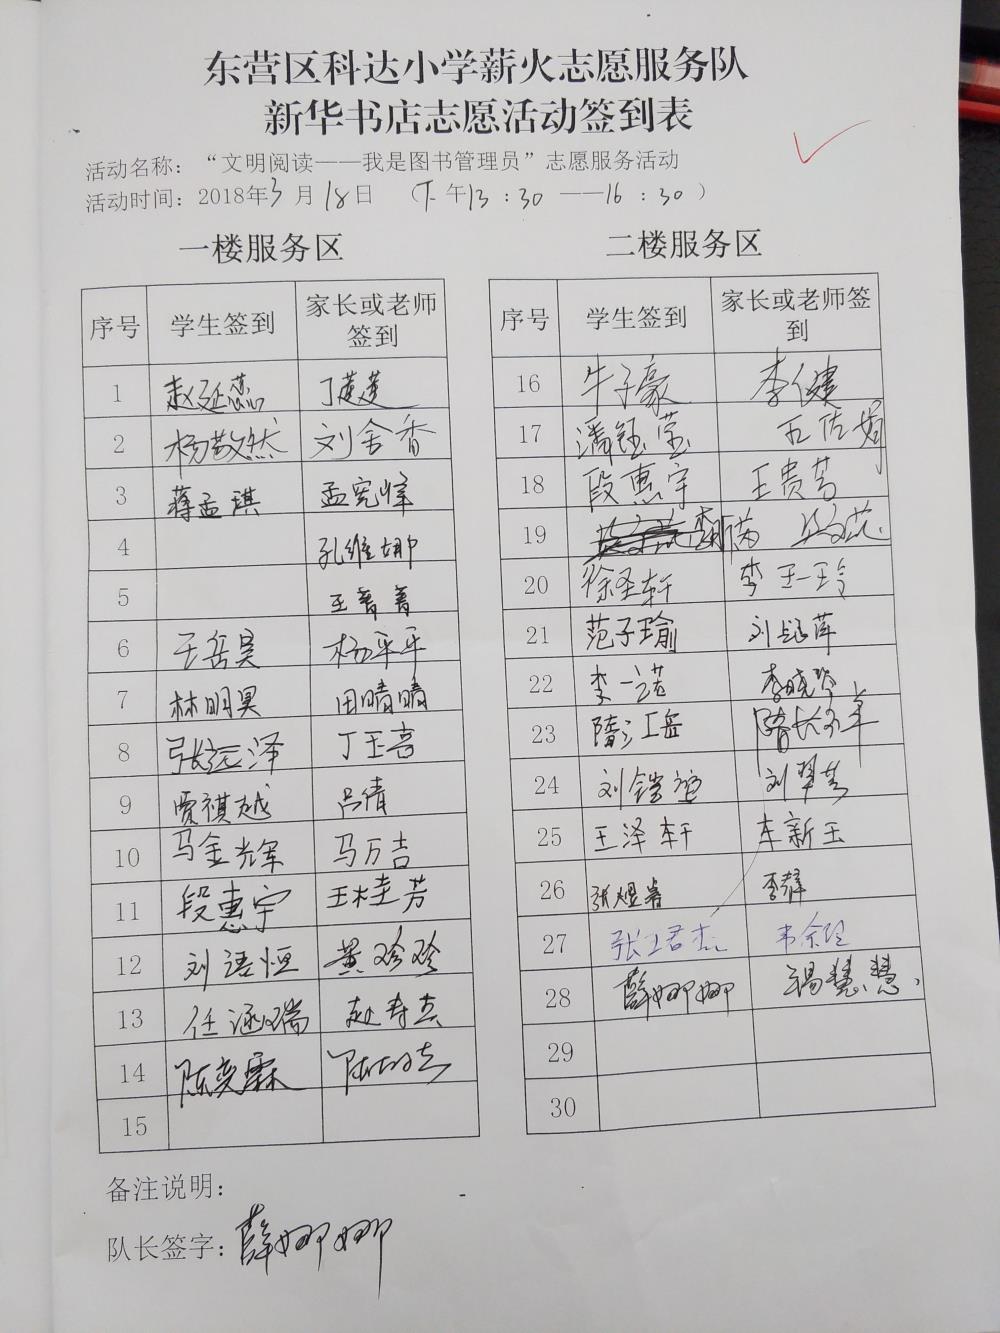 东营区科达小学薪火志愿服务队
新华书店志愿活动签到表
活动名称：“文明阅读——我是图书管理员”志愿服务活动
活动时间：2018年3月18日 （下午13：30——16：30）
一楼服务区
序号 学生签到 家长或老师签到
1 赵延蕊
2 杨敬然 刘舍香
3 蒋孟琪 孟宪峰
4 孔维娜
5 王菁菁
6 王岳昊 杨平平
7 林明昊 田晴晴
8 张远泽 丁玉杰
9 贾祺越 吕倩
10 马金光辉 马万吉
11 段惠宇 王桂芳
12 刘语恒 黄珍珍
13 任涵瑞 赵寿真
14 陈奕霖
15
二楼服务区
序号 学生签到 家长或老师签到
16 牛子豪 李健
17 潘钰莹
18 段惠宇 王贵芳
19
20 徐圣轩 李玉玲
21 范子瑜 刘
22 李一诺 李晓琴
23 隋江岳 隋
24 刘铠谊 刘翠芳
25 王泽轩 车新玉
26 张煜睿 李静
27 张君杰
28 薛娜娜 杨慧慧
29
30
备注说明：
队长签字：薛娜娜